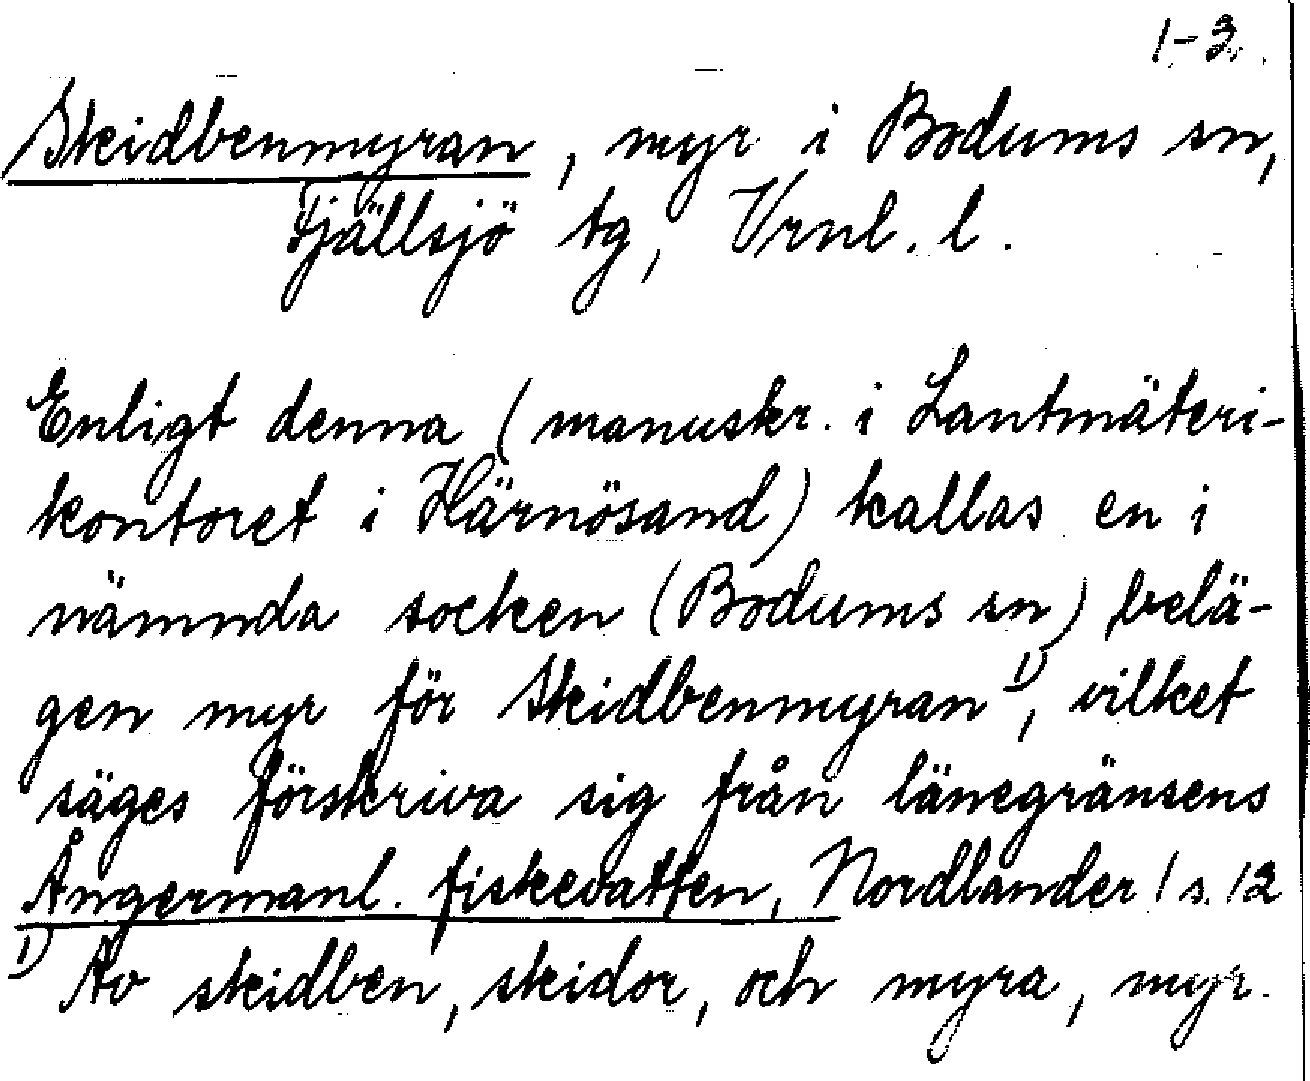 1-3.
Skidbenmyran, myr i Bodums sn,
Fjällsjö tg, Vrnl. l.
Enligt denna (manuskr. i Lantmäteri-
kontoret i Härnösand) kallas en i
nämnda socken (Bodums sn) belä-
gen myr för Skidbenmyran 1), vilket
säges förskriva sig från länegränsens
Ångermanl. fiskevatten, Nordlander 1 s. 12
1) Av skidben, skidor, och myra, myr.